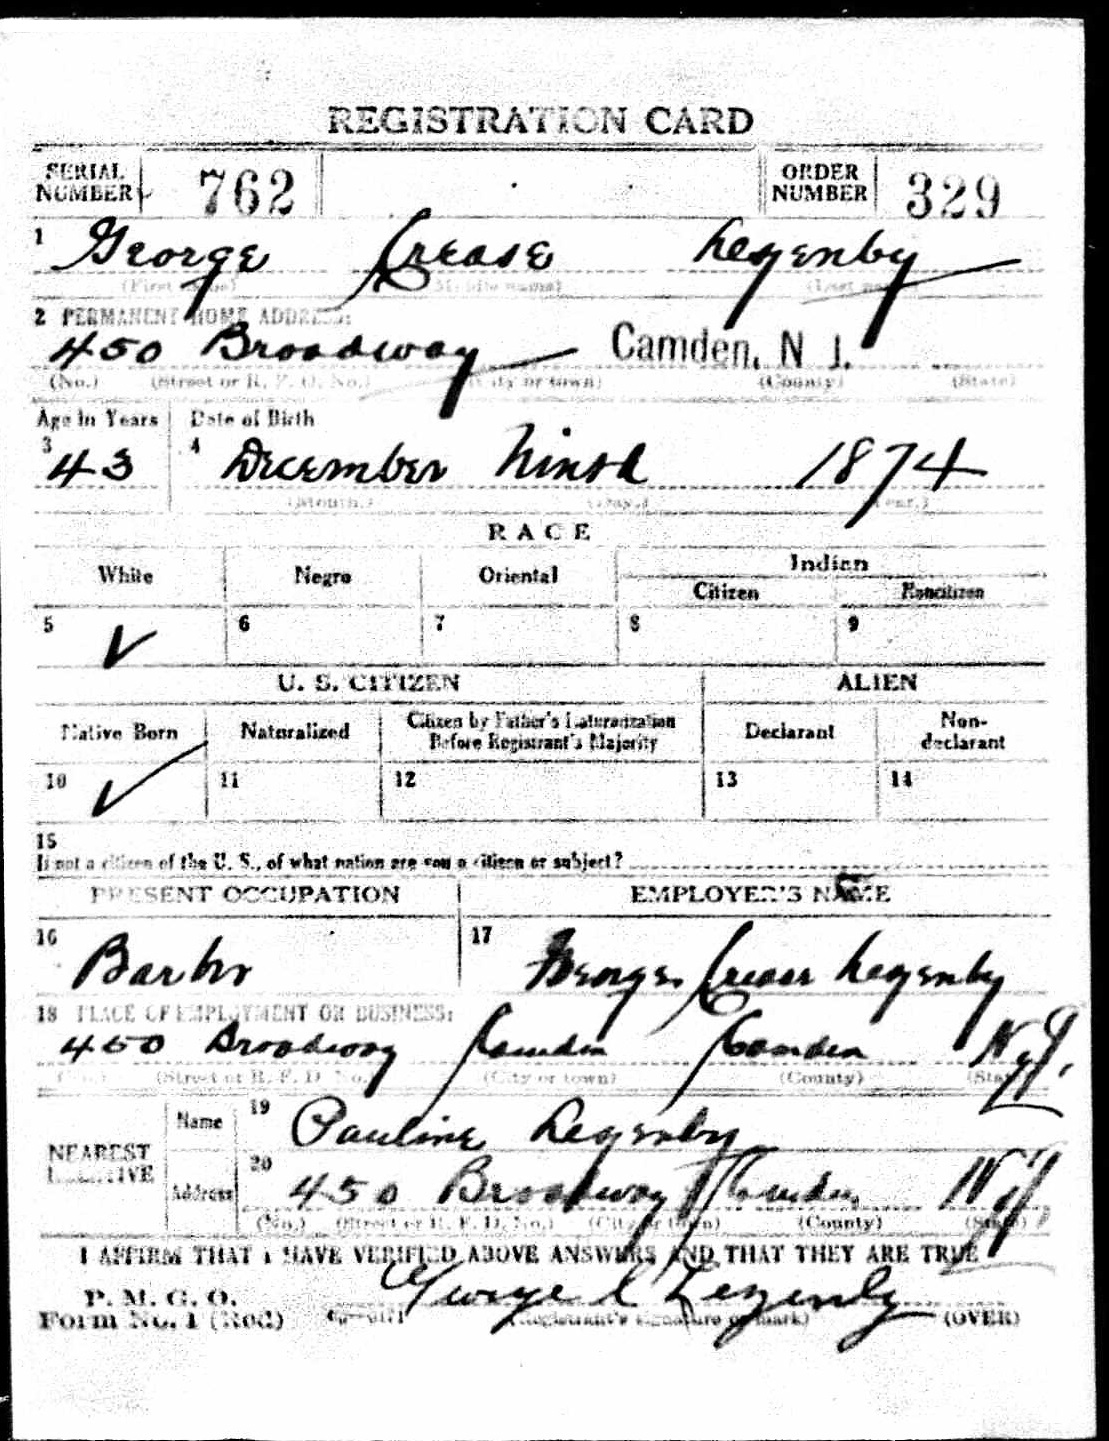 REGISTRATION CARD
SERIAL NUMBER 762 ORDER NUMBER 329
1 George Crease Lezenby
(First name) (Middle name) (Last name)
2 PERMANENT HOME ADDRESS:
450 Broadway Camden, N J.
(No.) (Street or R. F. D. No.) (City or town) (County) (State)
Age in Years Date of Birth
3 43 4 December Ninth 1874
(Month.) (Day.) (Year.)
RACE
White Negro Oriental Indian
Citizen Noncitizen
5 ✓ 6 7 8 9
U. S. CITIZEN ALIEN
Native Born Naturalized Citizen by Father's Naturalization Before Registrant's Majority Declarant Non-declarant
10 ✓ 11 12 13 14
15
If not a citizen of the U. S., of what nation are you a citizen or subject?
PRESENT OCCUPATION EMPLOYER'S NAME
16 Barber 17 George Crease Lezenby
18 PLACE OF EMPLOYMENT OR BUSINESS:
450 Broadway Camden Camden N.J.
(No.) (Street or R. F. D. No.) (City or town) (County) (State)
NEAREST RELATIVE Name 19 Pauline Lezenby
Address 20 450 Broadway Camden N.J.
(No.) (Street or R. F. D. No.) (City or town) (County) (State)
I AFFIRM THAT I HAVE VERIFIED ABOVE ANSWERS AND THAT THEY ARE TRUE
P. M. G. O.
Form No. 1 (Red) George C Lezenby
(Registrant's signature or mark) (OVER)